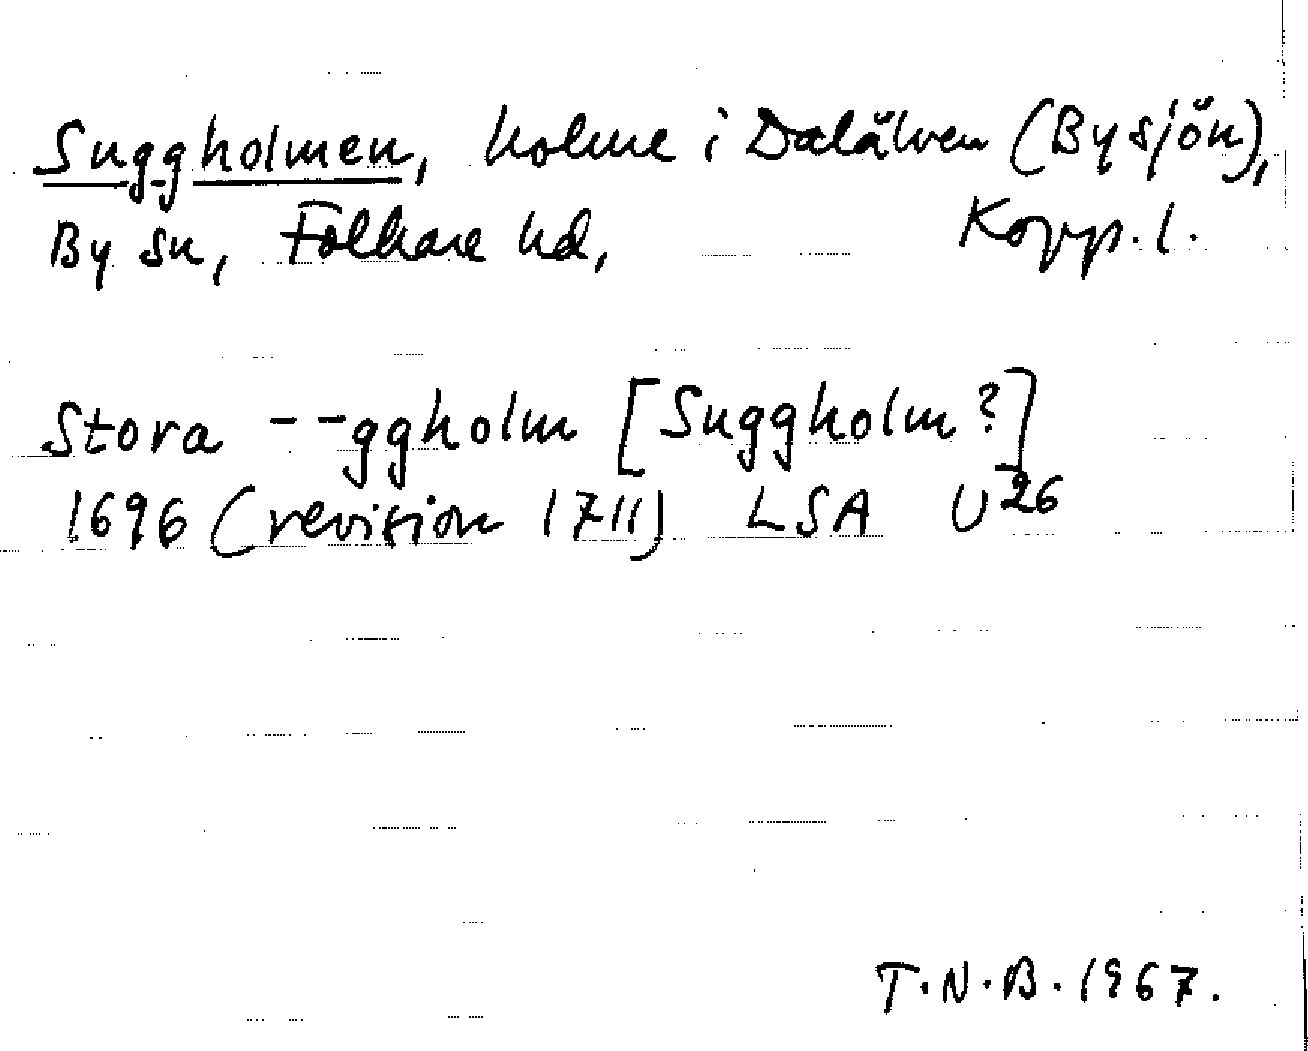 Suggholmen, holme i Dalälven (Bysjön),
By sn, Folkare hd, Kopp. l.
Stora --ggholm [Suggholm?]
1696 (revision 1711) LSA U 26
T.N.B. 1967.